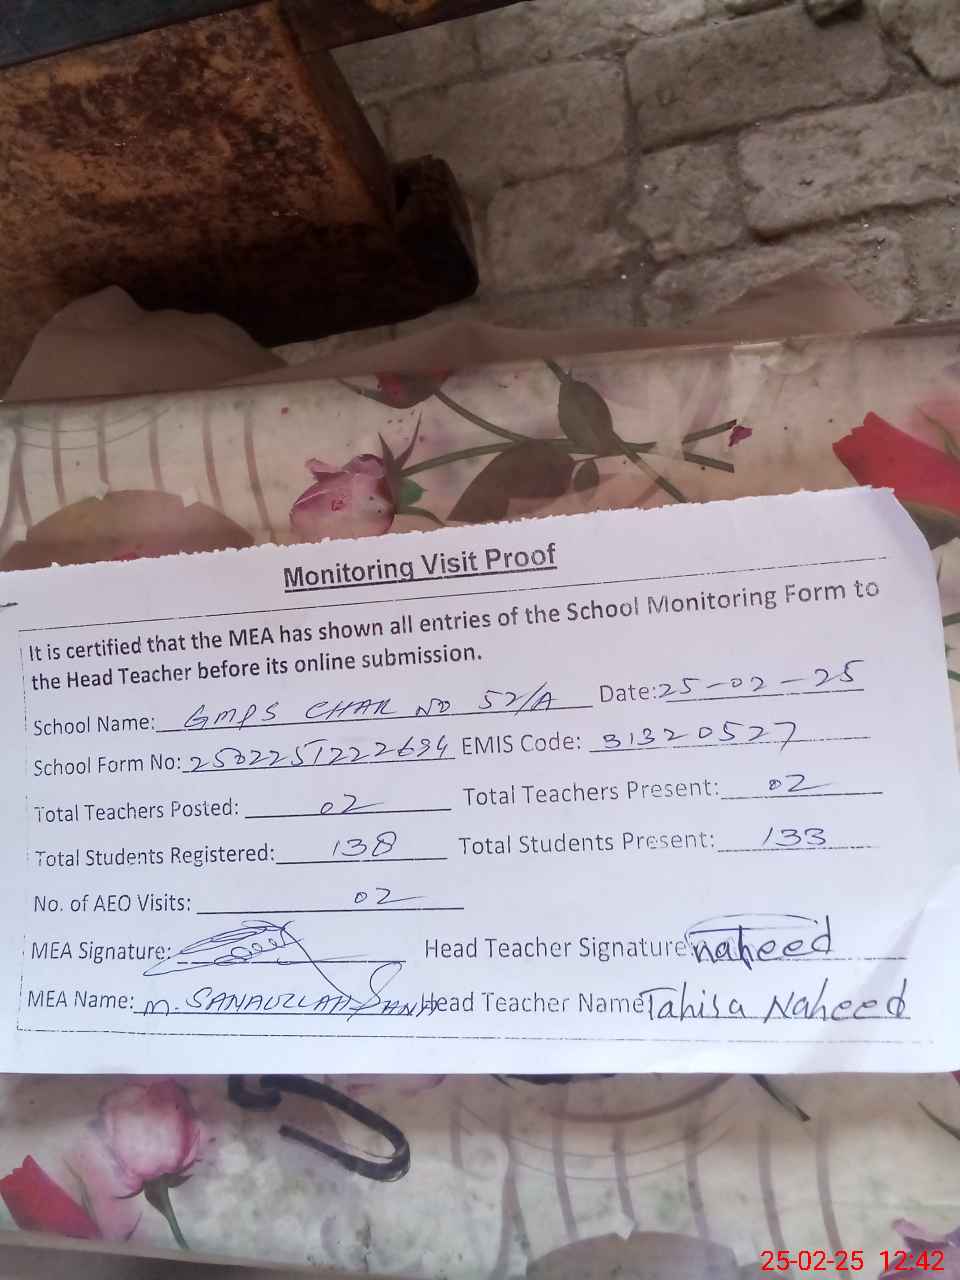 Monitoring Visit Proof
It is certified that the MEA has shown all entries of the School Monitoring Form to
the Head Teacher before its online submission.
School Name: GMPS CHAK NO 52/A Date: 25-02-25
School Form No: 2502251222694 EMIS Code: 31320527
Total Teachers Posted: 02 Total Teachers Present: 02
Total Students Registered: 138 Total Students Present: 133
No. of AEO Visits: 02
MEA Signature: Head Teacher Signature naheed
MEA Name: M. SANAULLAH Head Teacher Name Tahisa Naheed
25-02-25 12:42